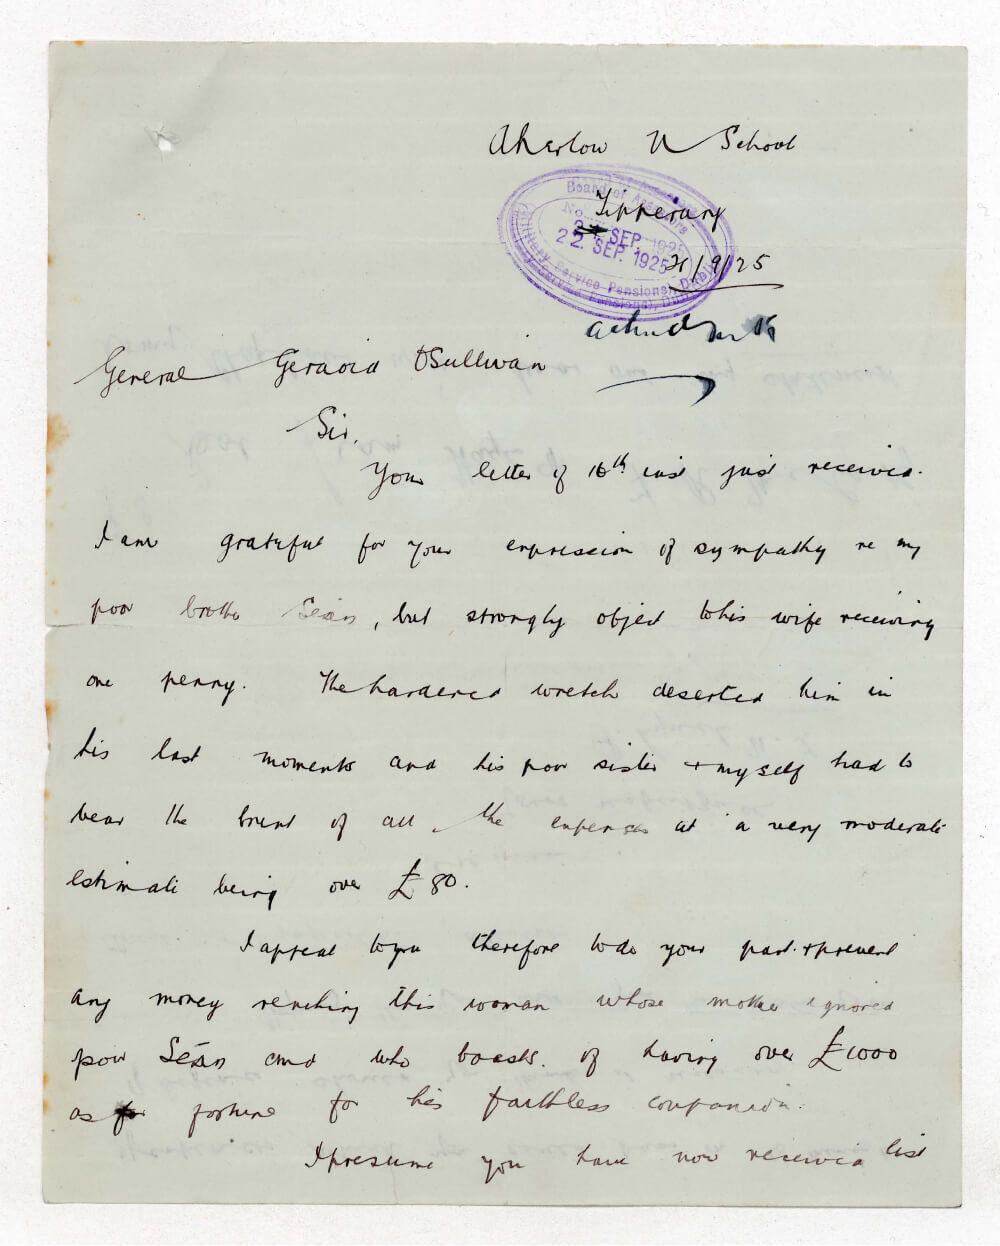 Aherlow N School
Tipperary
Board of Assessors
No.
21 SEP. 1925
22. SEP. 1925
Military Service Pensions, Dublin
21/9/25
General Gearóid O'Sullivan
Sir,
Your letter of 16th inst just received.
I am grateful for your expression of sympathy re my
poor brother Seán, but strongly object to his wife receiving
one penny. The hardened wretch deserted him in
his last moments and his poor sister + myself had to
bear the brunt of all, the expenses at a very moderate
estimate being over £80.
I appeal to you therefore to do your part + prevent
any money reaching this woman whose mother ignored
poor Seán and who boasts of having over £1000
as fortune for his faithless companion.
I presume you have now received list